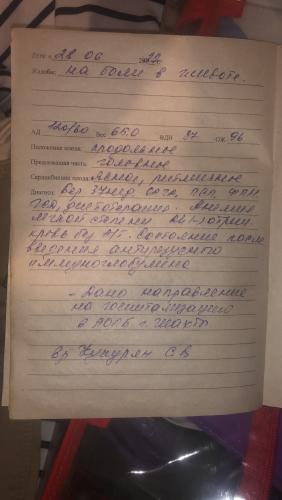 Дата « 28 06 20
Жалобы: на боли в животе.
АД 120/80 Вес 65.0 ВДМ 37 ОЖ 96
Положение плода: продольное
Предлежащая часть: головное
Сердцебиение плода: ясное, ритмичное
Диагноз: Бер 37нед
Анемия
легкой степени АВ(-)отриц
кровь без А/Т. Состояние после
введения антирезусного
иммуноглобулина
- Дано направление
на госпитализацию
в г. Шахты
Вр С В